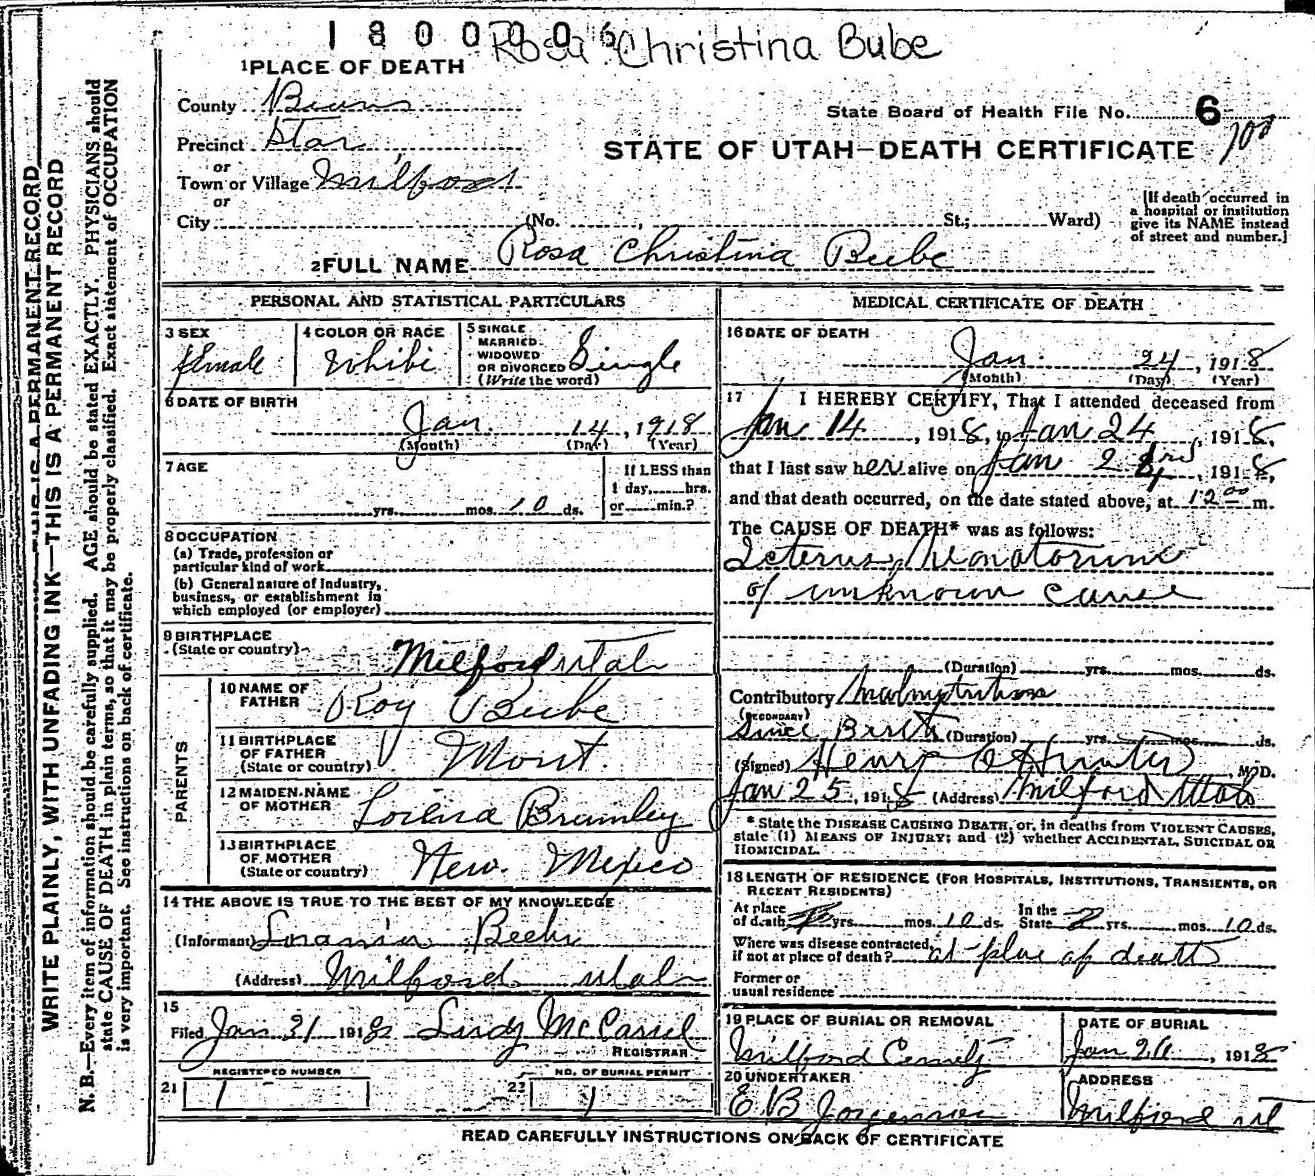 1800006 Rosa Christina Bube
1 PLACE OF DEATH
County
State Board of Health File No. 6
Precinct Star
STATE OF UTAH—DEATH CERTIFICATE
or
Town or Village Milford
or
City (No. St.; Ward)
[If death occurred in
a hospital or institution
give its NAME instead
of street and number.]
2 FULL NAME Rosa Christina Beebe
PERSONAL AND STATISTICAL PARTICULARS
3 SEX
female
4 COLOR OR RACE
White
5 SINGLE
MARRIED
WIDOWED
OR DIVORCED
(Write the word)
Single
6 DATE OF BIRTH
Jan. 14, 1918
(Month) (Day) (Year)
7 AGE
yrs. mos. 10 ds.
If LESS than
1 day, hrs.
or min.?
8 OCCUPATION
(a) Trade, profession or
particular kind of work
(b) General nature of Industry,
business, or establishment in
which employed (or employer)
9 BIRTHPLACE
(State or country)
Milford Utah
PARENTS
10 NAME OF
FATHER
Roy Beebe
11 BIRTHPLACE
OF FATHER
(State or country)
Mont.
12 MAIDEN NAME
OF MOTHER
Lorena Brumley
13 BIRTHPLACE
OF MOTHER
(State or country)
New. Mexico
14 THE ABOVE IS TRUE TO THE BEST OF MY KNOWLEDGE
(Informant) Beebe
(Address) Milford Utah
15
Filed Jan 31 1918
REGISTRAR
REGISTERED NUMBER
21 1
NO. OF BURIAL PERMIT
22 1
MEDICAL CERTIFICATE OF DEATH
16 DATE OF DEATH
Jan. 24, 1918
(Month) (Day) (Year)
17 I HEREBY CERTIFY, That I attended deceased from
Jan 14, 1918, to Jan 24, 1918,
that I last saw her alive on Jan, 1918,
and that death occurred, on the date stated above, at 12 00 m.
The CAUSE OF DEATH* was as follows:
Icterus Neonatorum
of unknown cause
(Duration) yrs. mos. ds.
Contributory Malnutrition
(SECONDARY)
Since Birth (Duration) yrs. mos. ds.
(Signed) Henry, M.D.
Jan 25, 1918 (Address) Milford Utah
* State the DISEASE CAUSING DEATH, or, in deaths from VIOLENT CAUSES,
state (1) MEANS OF INJURY; and (2) whether ACCIDENTAL, SUICIDAL OR
HOMICIDAL.
18 LENGTH OF RESIDENCE (FOR HOSPITALS, INSTITUTIONS, TRANSIENTS, OR
RECENT RESIDENTS)
At place
of death yrs. mos. 10 ds.
In the
State yrs. mos. 10 ds.
Where was disease contracted,
if not at place of death? at place of death
Former or
usual residence
19 PLACE OF BURIAL OR REMOVAL
Milford Cemetery
DATE OF BURIAL
Jan 26, 1918
20 UNDERTAKER
E B Jorgensen
ADDRESS
Milford Ut
READ CAREFULLY INSTRUCTIONS ON BACK OF CERTIFICATE
WRITE PLAINLY, WITH UNFADING INK—THIS IS A PERMANENT RECORD
N. B.—Every item of information should be carefully supplied. AGE should be stated EXACTLY. PHYSICIANS should
state CAUSE OF DEATH in plain terms, so that it may be properly classified. Exact statement of OCCUPATION
is very important. See instructions on back of certificate.